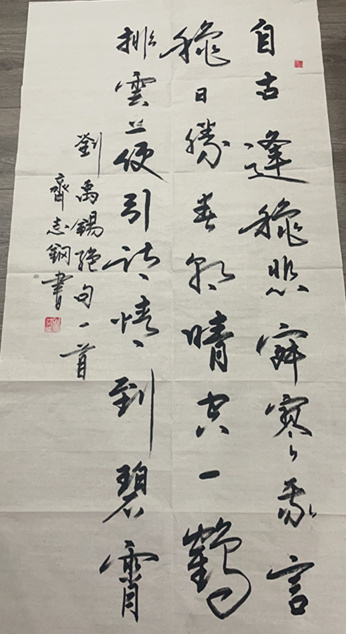 自古逢秋悲寂寥我言
秋日勝春朝晴空一鶴
排雲上便引詩情到碧霄
劉禹錫絕句一首
齊志鋼書